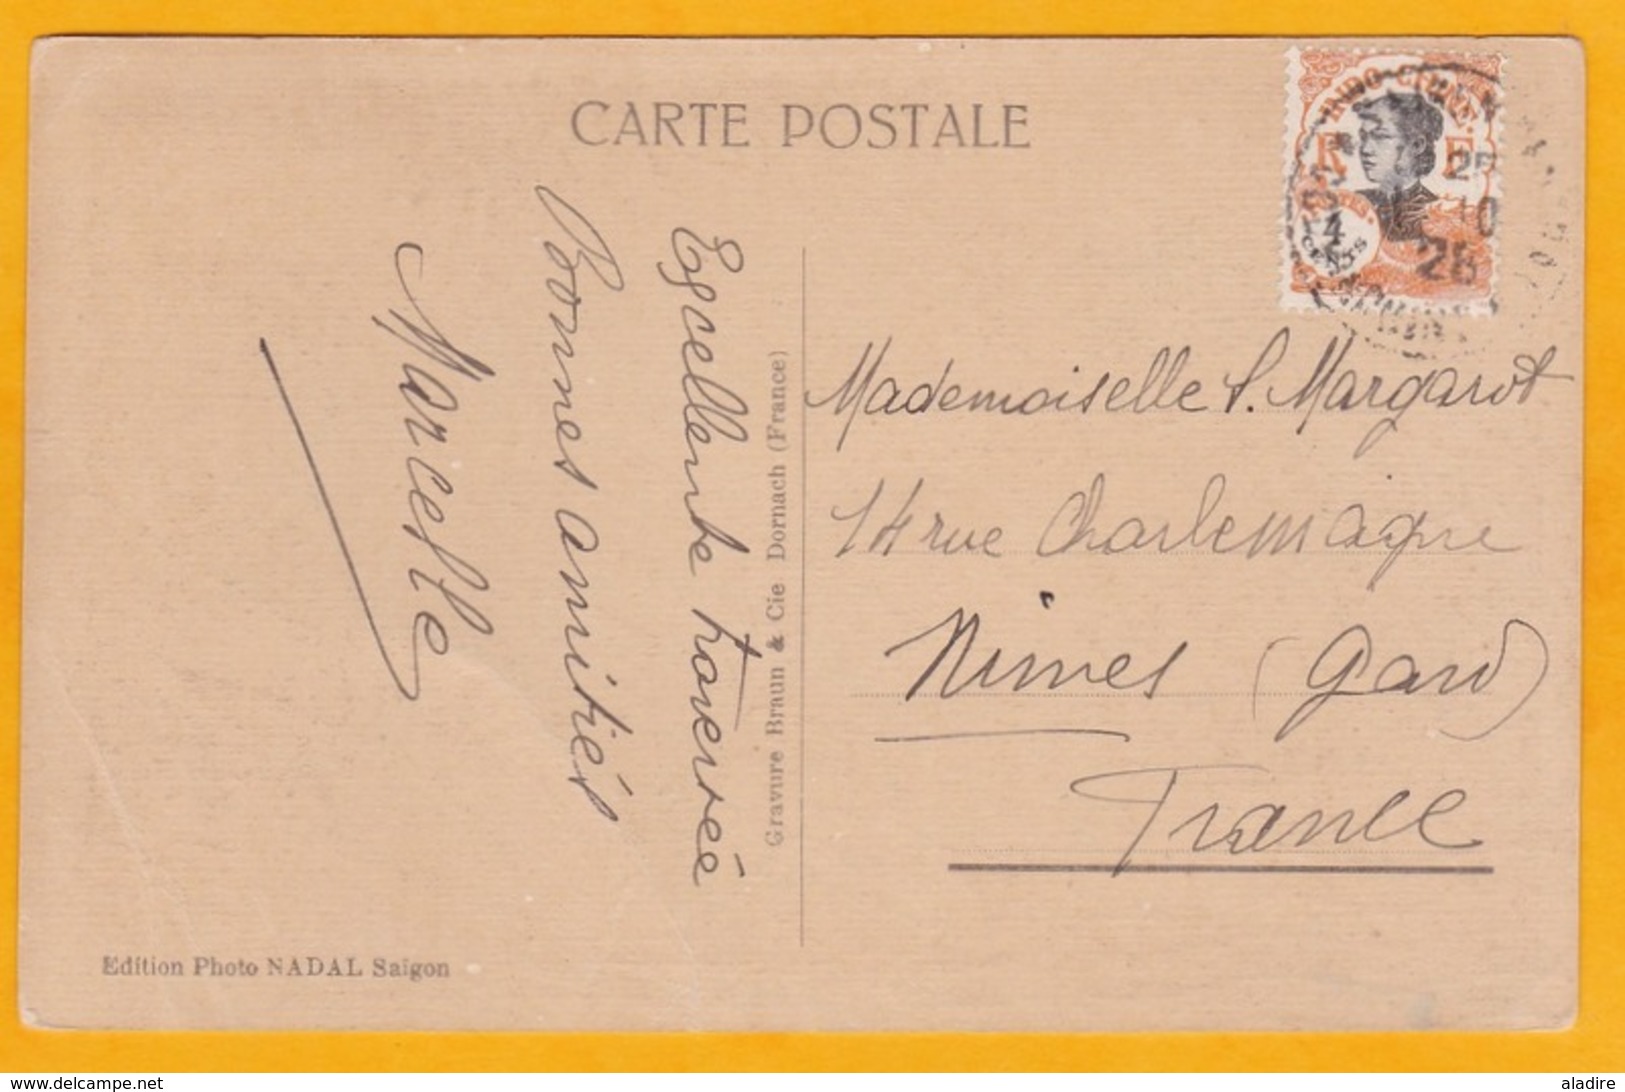 CARTE POSTALE
INDO-CHINE
R F
POSTES
4
CENTS
25
10
26
Excellente traversée
Bonnes amitiés
Marcelle
Gravure Braun & Cie Dornach (France)
Mademoiselle S. Margarot
14 rue Charlemagne
Nimes (Gard)
France
Edition Photo NADAL Saïgon
www.delcampe.net
aladire